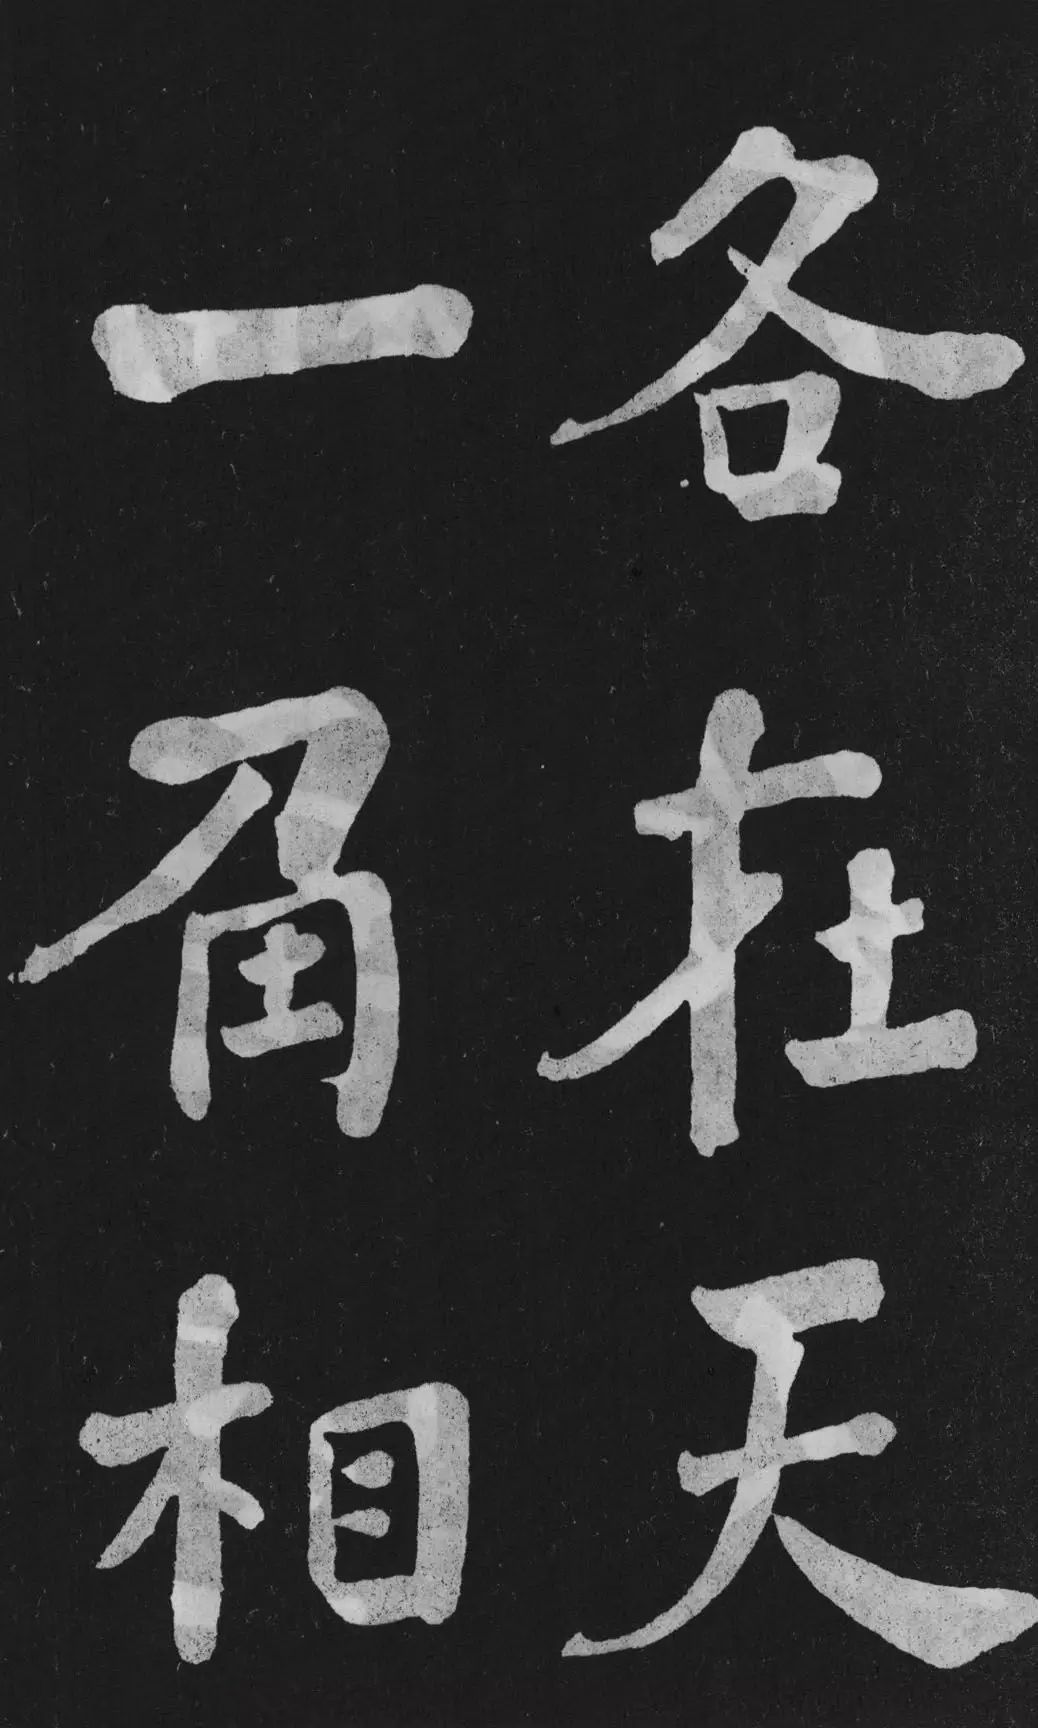 各在天
一角相